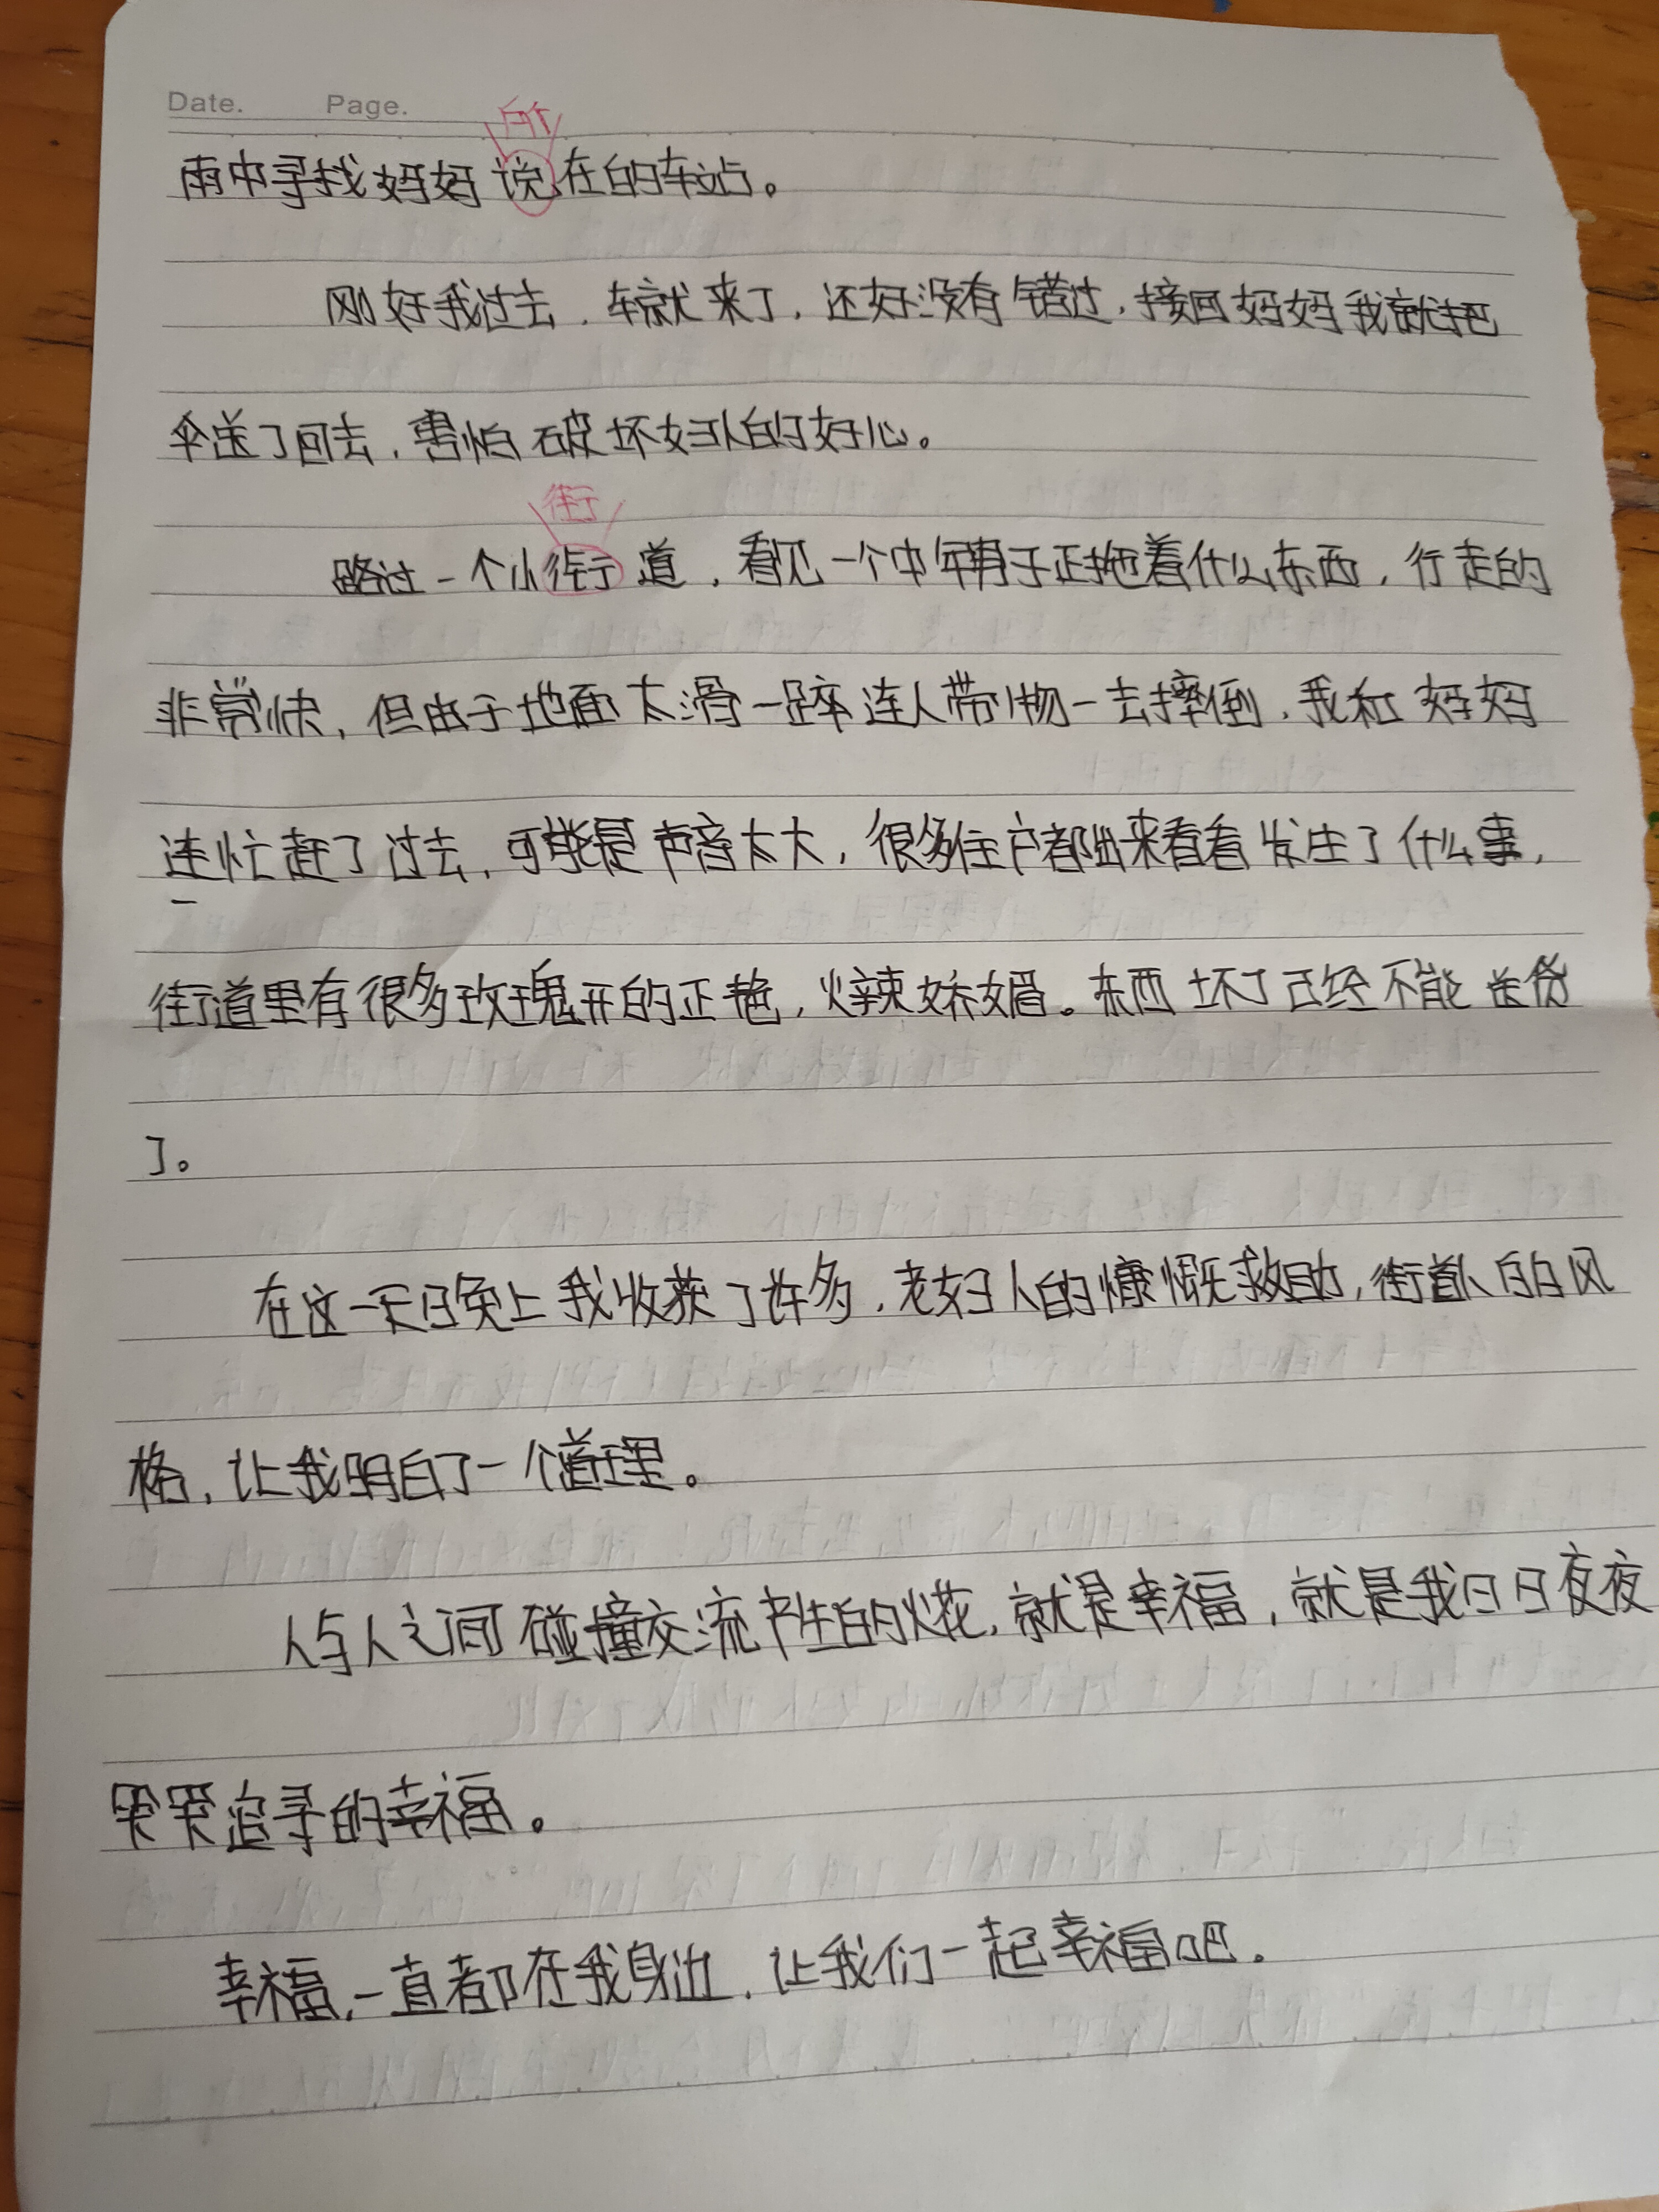 Date. Page.
所
雨中寻找妈妈说在的车站。
刚好我过去，车就来了，还好没有错过，接回妈妈我就把
伞送了回去，害怕破坏妇人的好心。
街
路过一个小街道，看见一个中年男子正拖着什么东西，行走的
非常快，但由于地面太滑一踤连人带物一去摔倒，我和妈妈
连忙赶了过去，可能是声音太大，很多住户都出来看看发生了什么事，
街道里有很多玫瑰开的正艳，火辣娇媚。东西坏了已经不能送货
了。
在这一天晚上我收获了许多，老妇人的慷慨救助，街道人的风
格，让我明白了一个道理。
人与人之间碰撞交流产生的火花，就是幸福，就是我日日夜夜
哭哭追寻的幸福。
幸福，一直都在我身边，让我们一起幸福吧。